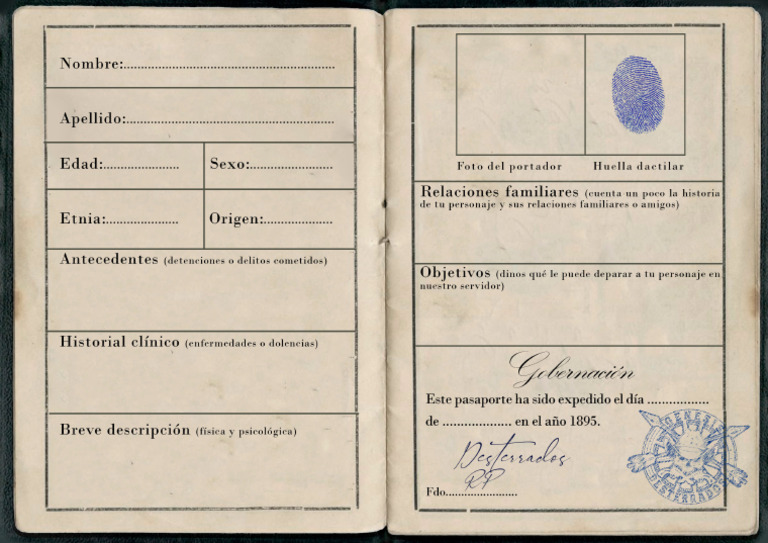 Nombre:......................................................
Apellido:.....................................................
Edad:................... Sexo:.....................
Etnia:.................. Origen:.................
Antecedentes (detenciones o delitos cometidos)
Historial clínico (enfermedades o dolencias)
Breve descripción (física y psicológica)
Foto del portador Huella dactilar
Relaciones familiares (cuenta un poco la historia
de tu personaje y sus relaciones familiares o amigos)
Objetivos (dinos qué le puede deparar a tu personaje en
nuestro servidor)
Gobernación
Este pasaporte ha sido expedido el día .................
de ................... en el año 1895.
Desterrados
RP
Fdo.......................
GENESIS
DESTERRADOS